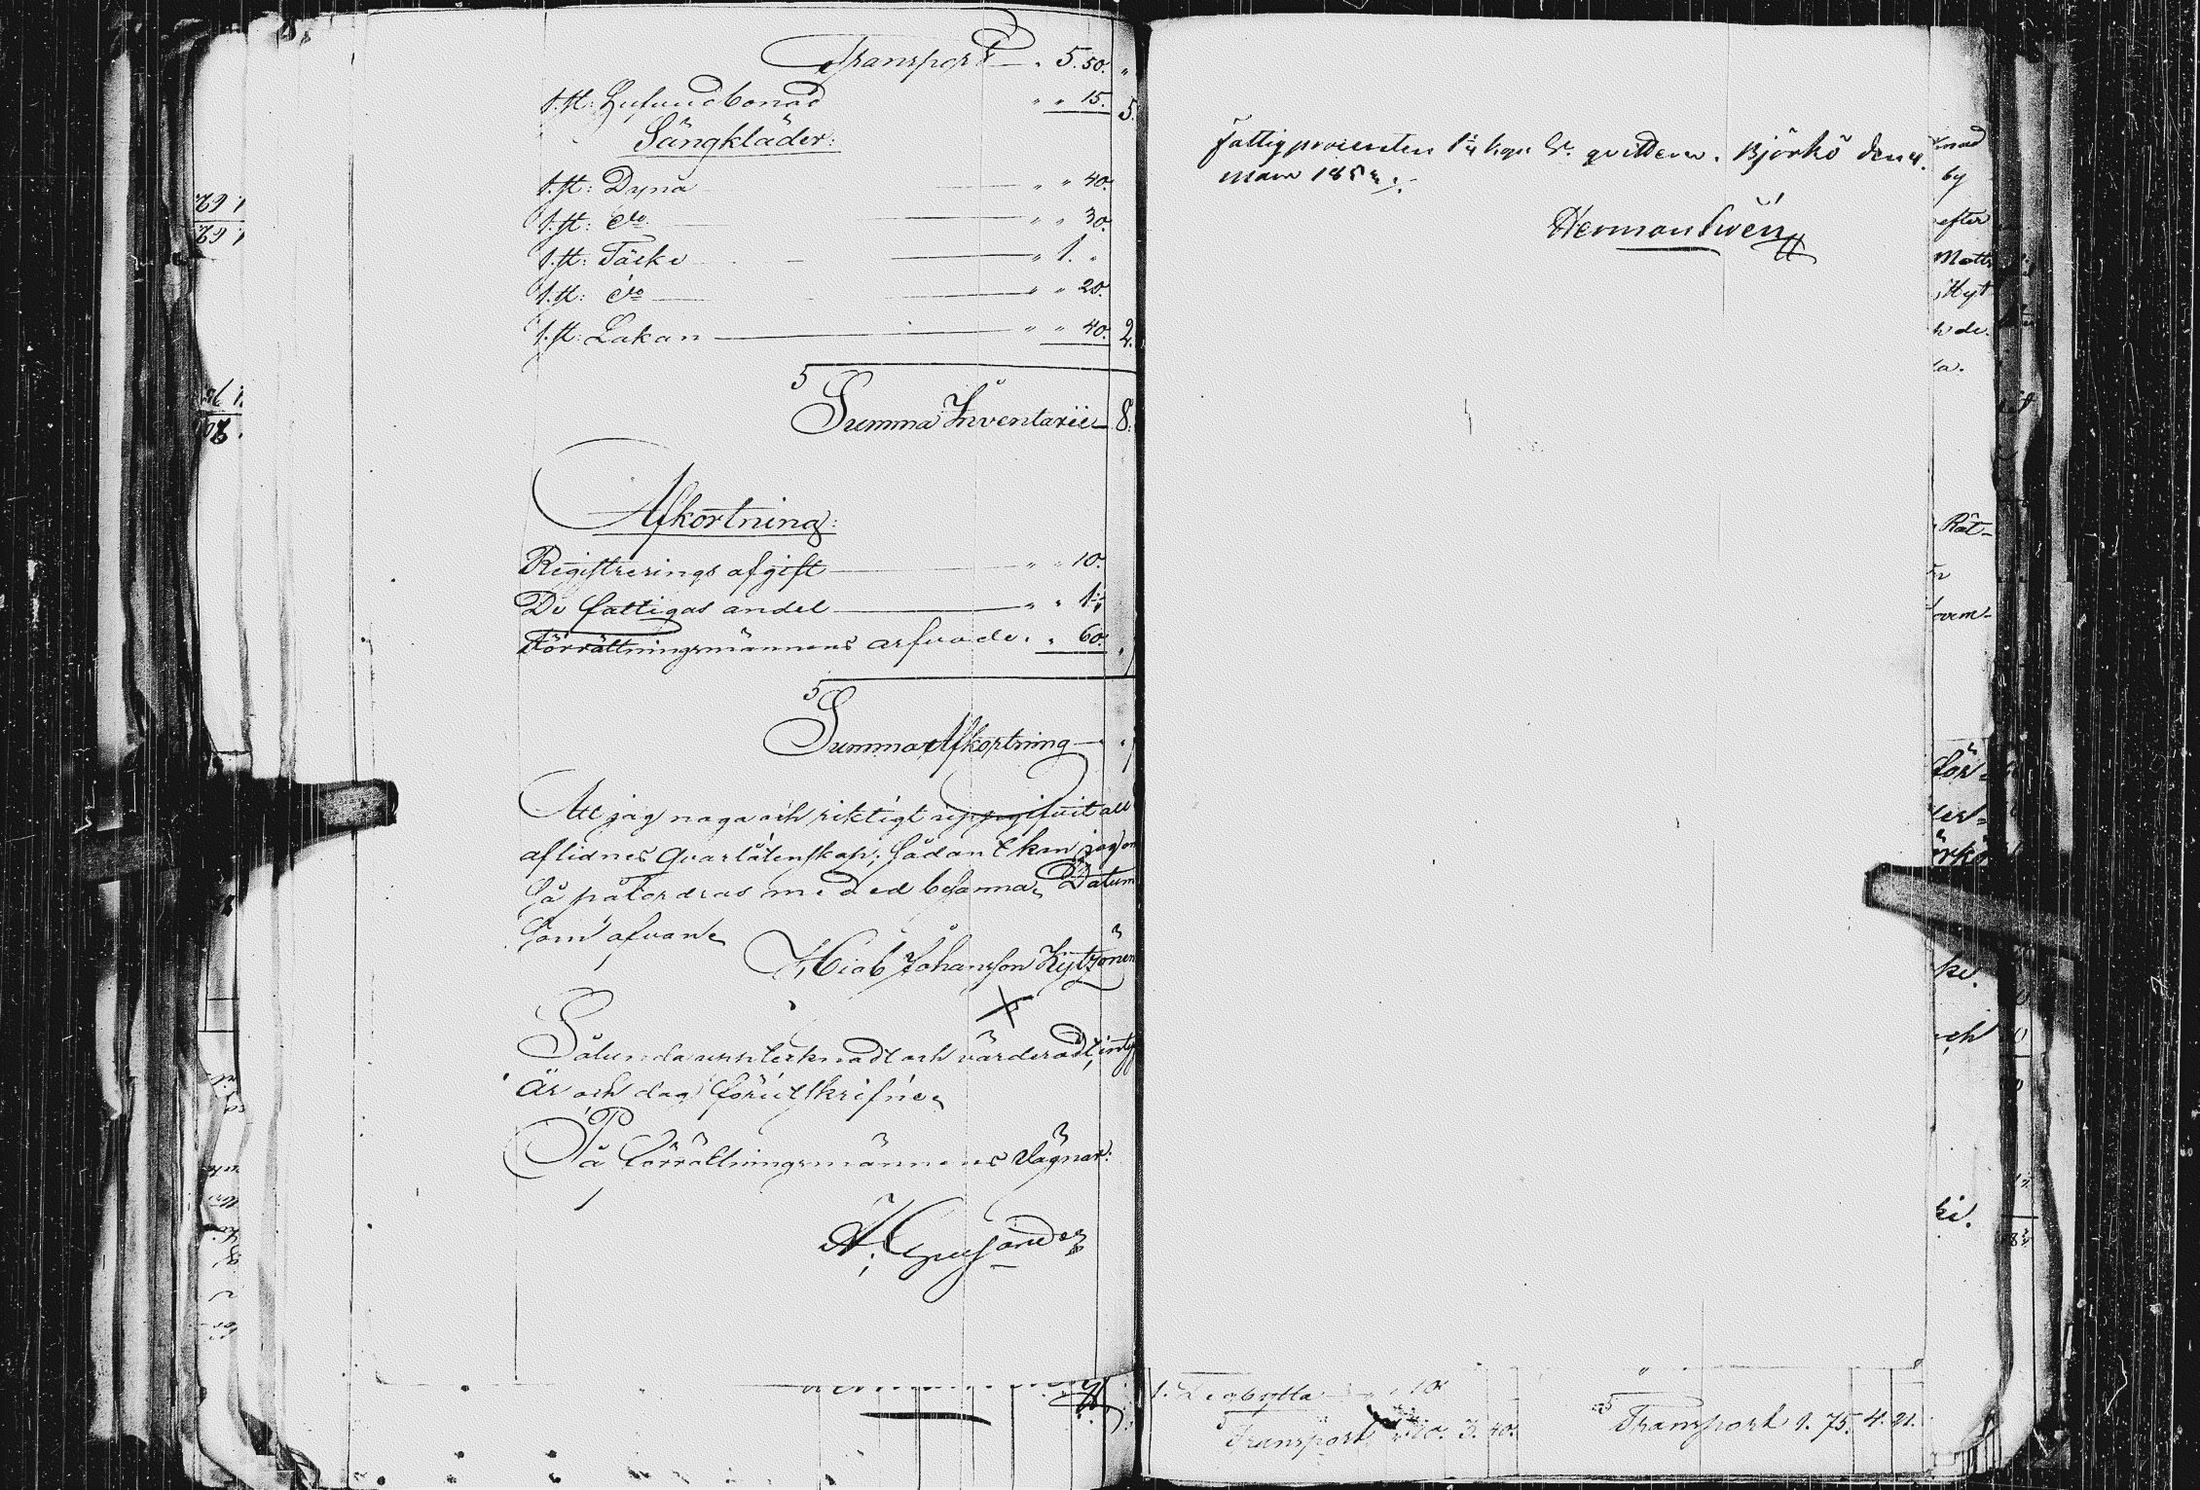 Transport — „ 5. 50. „
1. st: Hufvudbonad „ „ 15. 5.
Sängkläder:
1. st: Dyna „ „ 40.
1. st: do „ „ 30.
1. st: Täcke „ 1. „
1. st: do „ „ 20.
1. st: Lakan „ „ 40. 2.
Summa Inventarii 8.
Afkortning:
Registrerings afgift „ „ 10.
De fattigas andel „ „ 1¼
Förrättningsmännens arfvode „ „ 60.
Summa Afkortning
Att jag noga och riktigt uppgifvit all
aflidnes qvarlåtenskap; sådant kan jag om
så påfordras med ed besanna, Datum
som ofvan
Hiob Johansson Kytönen
X
Sålunda upptecknadt och värderadt, intyg
År och dag förutskrifne,
På Förrättningsmännens vägnar:
Fattigprocenten 1¼ kop. Sr. qvitteras. Björkö den 4.
mars 185
Herman Swén
Transport 3. 40.
Transport 1. 75. 4. 21.
knad
by
efter
Matts
Hyt
de
la.
Rät-
för-
ke.
och